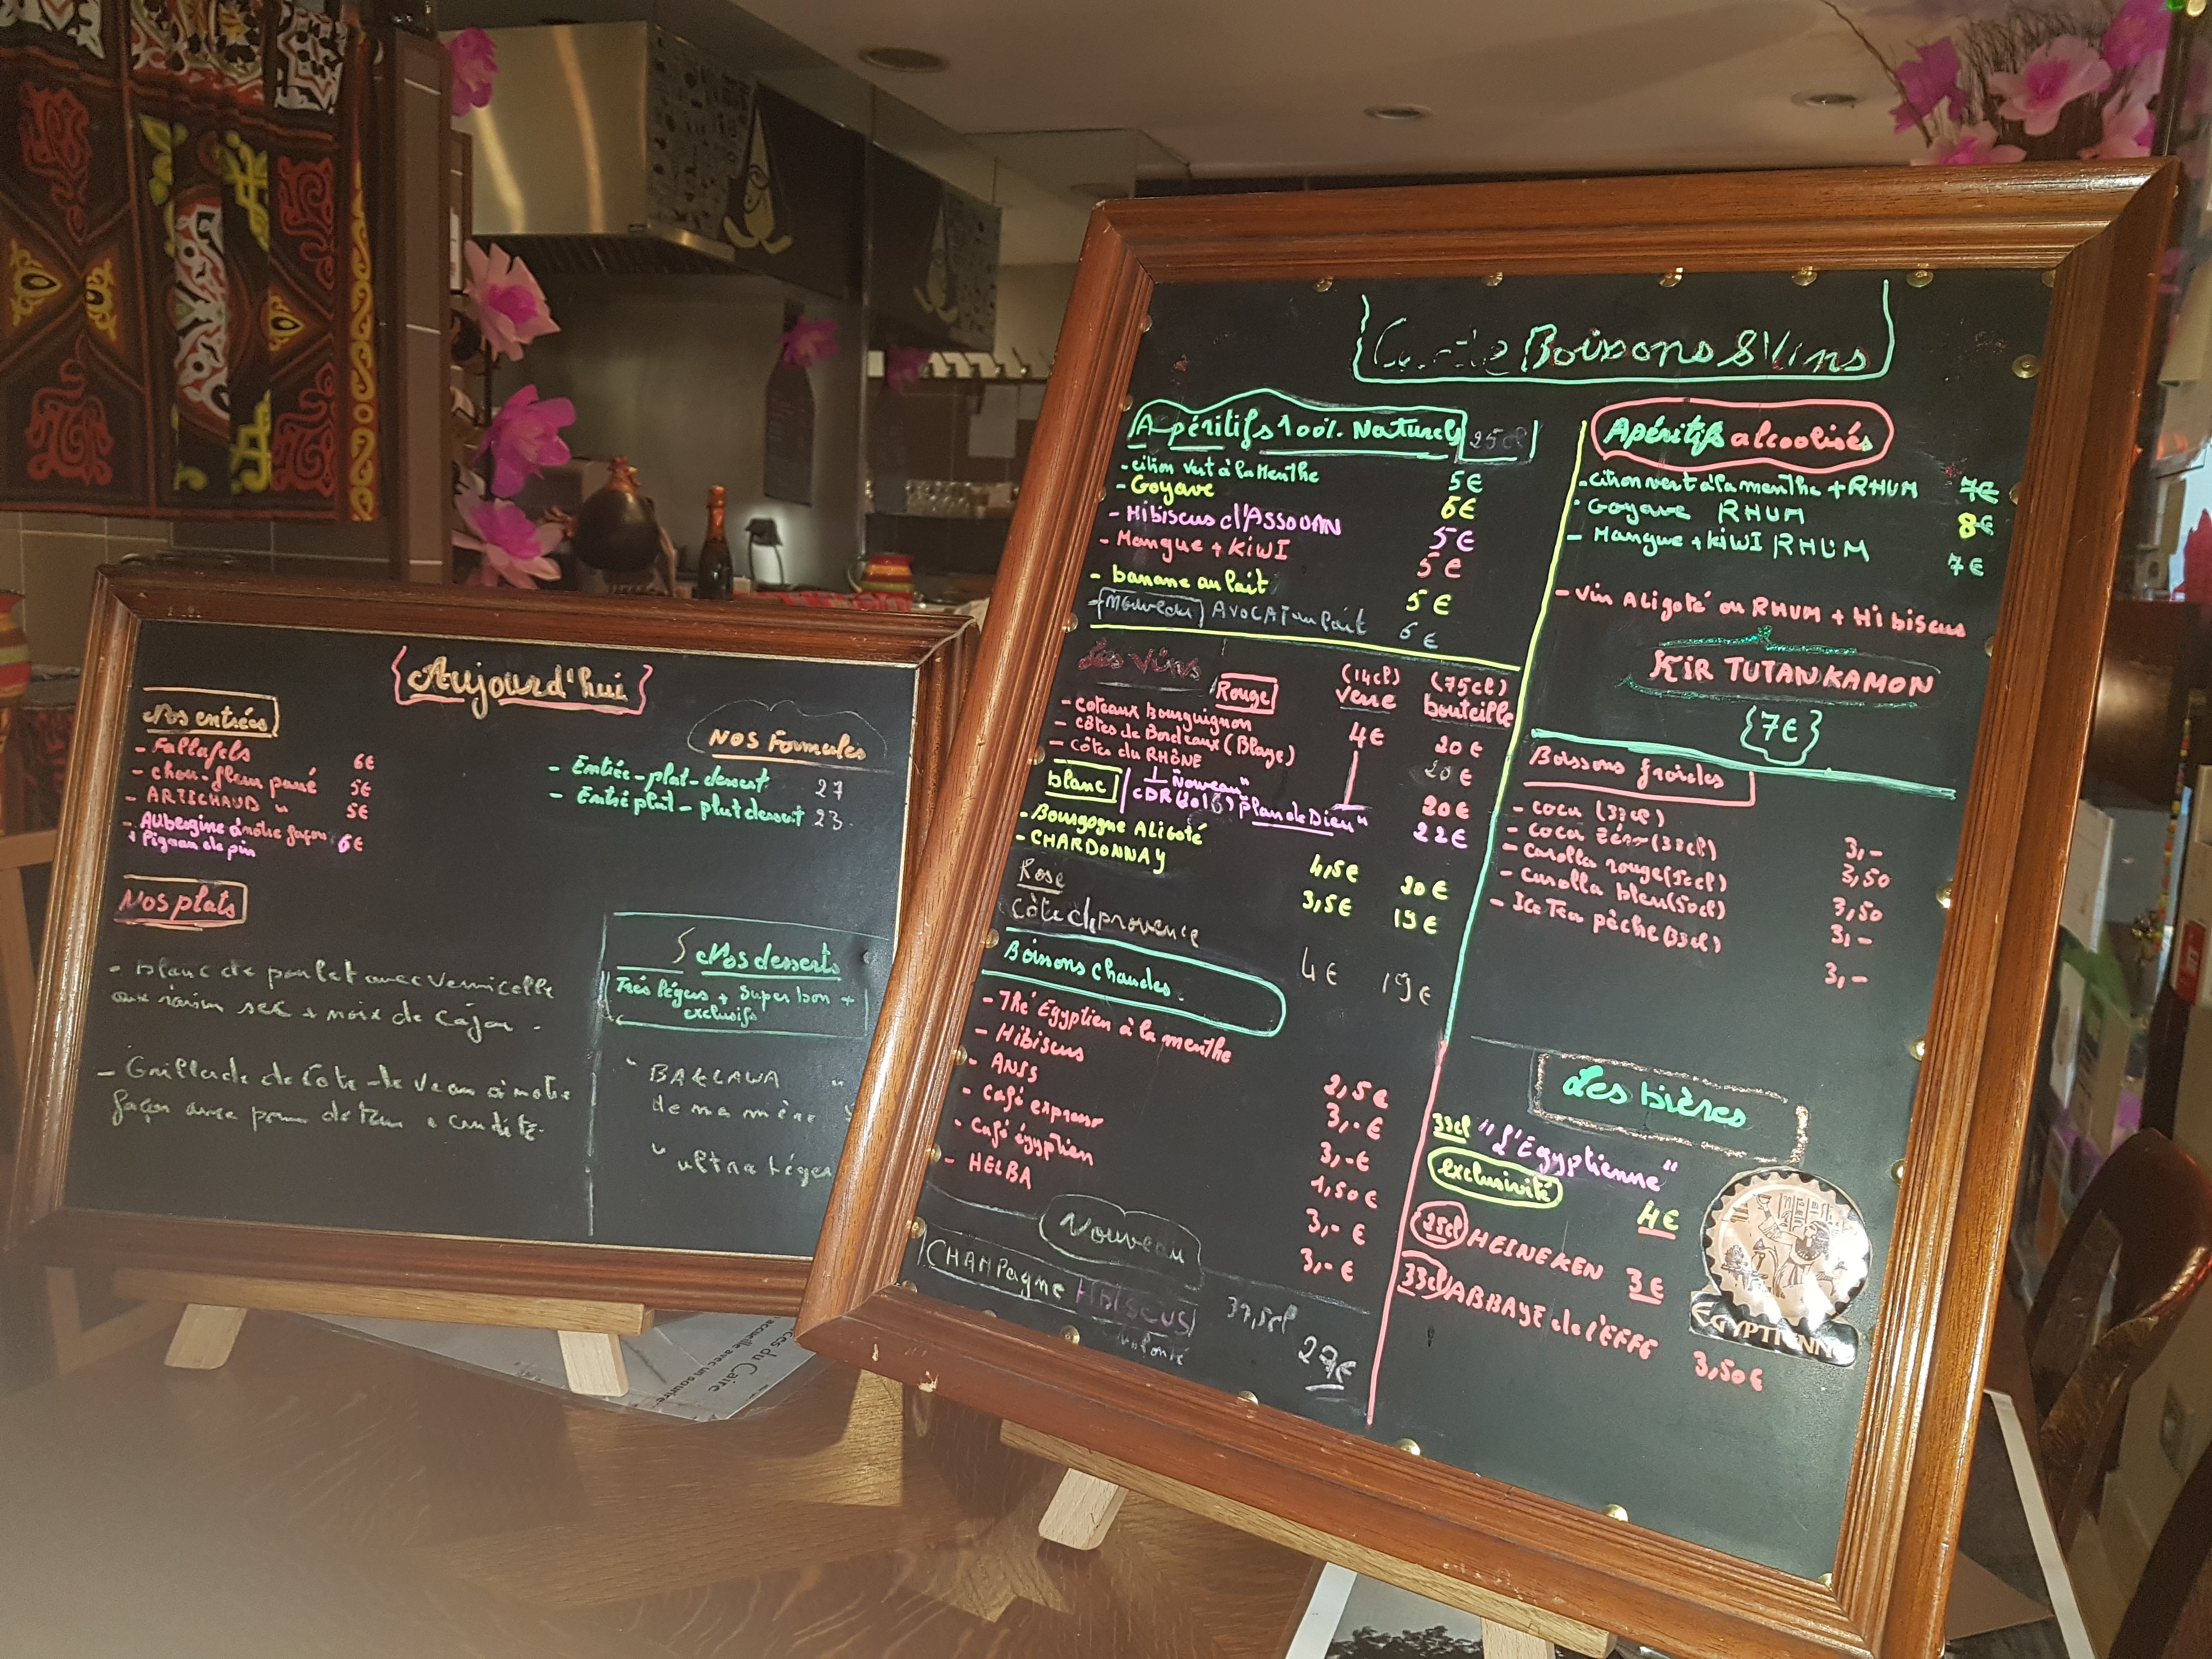 Aujourd'hui
Nos entrées
- Fallafels 6€
- chou-fleur pané 5€
- ARTICHAUD " 5€
- Aubergine à notre façon 6€
+ Pignon de pin
NOS Formules
- Entrée-plat-dessert 27
- Entré plat - plat dessert 23
Nos plats
- blanc de poulet avec Vermicelle
aux raisin sec + noix de Cajou.
- Grillade de Cote de Veau à notre
façon avec
Nos desserts
Très légers + Super bon +
exclusifs
" BAKLAWA "
de ma mère
" ultra Léger
Boissons & Vins
Apéritifs 100% Naturels 25cl
- citron vert à la Menthe 5€
- Goyave 6€
- Hibiscus d'ASSOUAN 5€
- Mangue + KiWI 5€
- banane au lait 5€
- Nouveau AVOCAT au lait 6€
Les Vins
Rouge (14cl) verre (75cl) bouteille
- coteaux Bourguignon 4€ 20€
- côtes de Bordeaux (Blaye) 20€
- côtes du RHÔNE 20€
"Nouveau"
CDR "plan de Dieu" 22€
blanc
- Bourgogne ALigoté 4,5€ 20€
- CHARDONNAY 3,5€ 19€
Rose
Côte de provence 4€ 19€
Boissons chaudes
- Thé Egyptien à la menthe 2,5€
- Hibiscus 3,-€
- ANIS 3,-€
- café expresso 1,50€
- Café égyptien 3,-€
- HELBA 3,-€
Nouveau
CHAMPagne HIBISCUS 37,5cl
27€
Apéritifs alcoolisés
- citron vert à la menthe + RHUM 7€
- Goyave RHUM 8€
- Mangue + KiWI RHUM 7€
- Vin ALigoté ou RHUM + Hibiscus
KIR TUTANKAMON
{7€}
Boissons froides
- coca (33cl) 3,-
- coca zéro (33cl) 3,50
- carolla rouge (50cl) 3,50
- carolla bleu (50cl) 3,-
- Ice Tea pêche (33cl) 3,-
Les bières
33cl "L'Egyptienne"
exclusivité 4€
25cl HEINEKEN 3€
33cl ABBAYE de l'EFFE 3,50€
EGYPTIENN
du Caire
accueille avec un sourire